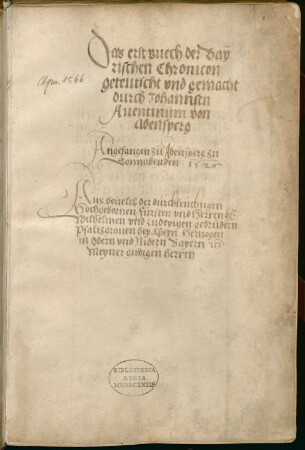 Das erst buech der Bay
rischen Chronicon
geteutscht vnd gemacht
durch Johannsen
Auentinum von
Abensperg
Cgm. 1566
Angefangen zu Abensperg zu
Sonnabenden 1526
Aus beuelch der durchleuchtigen
Hochgebornen fursten vnd Herren h
Wilhelmen vnd Ludwigen gebrudern
Pfaltzgrauen bey Rheyn Hertzogen
in Obern vnd Nidern Bayern &c
Meyner gnedigen herren
BIBLIOTHECA
REGIA
MONACENSIS